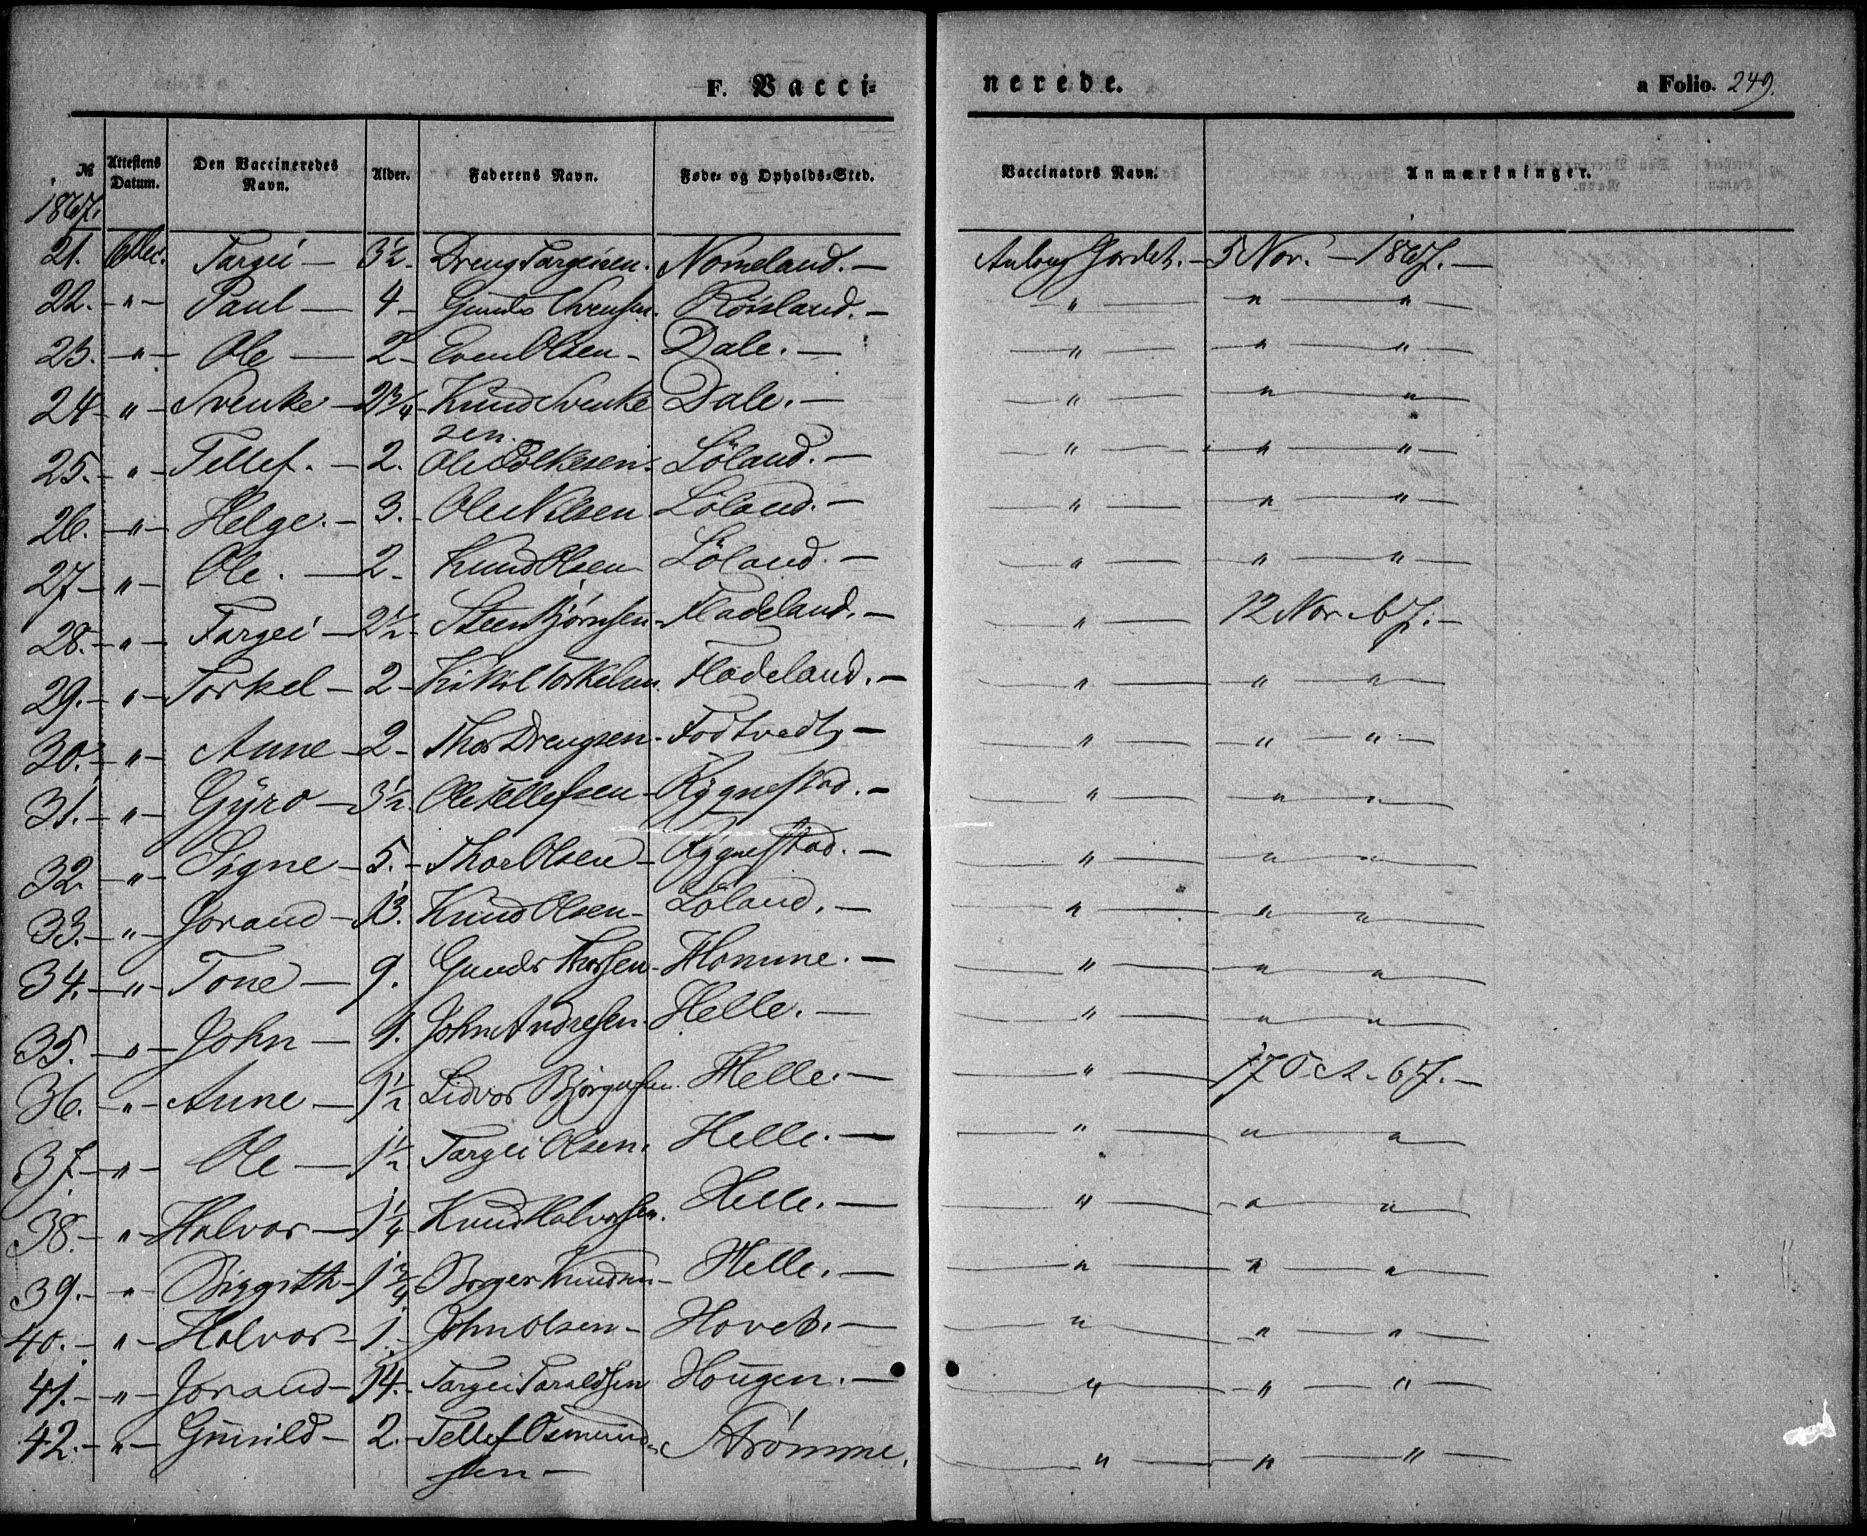 F. Vacci= nerede. a Folio. 249.
№ Attestens Datum. Den Vaccineredes Navn. Alder. Faderens Navn. Føde- og Opholds-Sted. Vaccinators Navn. Anmærkninger.
1867.
21. 6 Dec. Targei — 3½ - Dreng Targeisen. Nomeland. — Aulong Jordet. — 5 Nov. — 1867. —
22. - " - Paul — 4 - Gunder Røisland. — " " "
23. - " - Ole — 2 - Even Olsen - Dale. — " " "
24 - " - Svenke — 2¾ - Knud Svenke Dale. — " " "
sen.
25. - " - Tellef. — 2. Ole Folkesen. Löland. — " " "
26. - " - Helge. — 3. - Ole Nilsen Löland. — " " "
27 - " - Ole. — 2 - Knud Olsen Löland. — " " "
28. - " - Targei — 2½ - Steen Bjørnsen - Fladeland. — " 12 Nov. 67. —
29. - " - Torkel — 2 - Kittil Torkelsen. Fladeland. — " " "
30. - " - Anne — 2 - Thor Drengsen - Fodtvedt, — " " "
31. - " - Gÿro — 3½. Ole Tellefsen — Rygnestad. — " " "
32. - " - Signe — 5. - Thor Olsen — Rygnestad. — " " "
33. - " - Jorand — 13. Knud Olsen - Löland. — " " "
34. - " - Tone — 9. Gunder Thorsen - Homme. — " " "
35. - " - John — 9. John Andresen. Helle. — " " "
36. - " - Anne — 1½ Lidvor Bjørgusen. Helle. — " 17 Oct. 67. —
37. - " - Ole — 1½ Targei Olsen. Helle. — " " "
38. - " - Halvor — 1¼ Knud Halvorsen. Helle. — " " "
39. - " - Birgith — 1¾ Børger Knudsen — Helle. — " " "
40. - " - Halvor — 1. John Olsen - Hovet. — " " "
41. - " - Jorand — 14. - Targei Taraldsen Hougen. — " " "
42. - " - Gunild — 2. - Tellef Osmund- Strømme. " " "
sen —